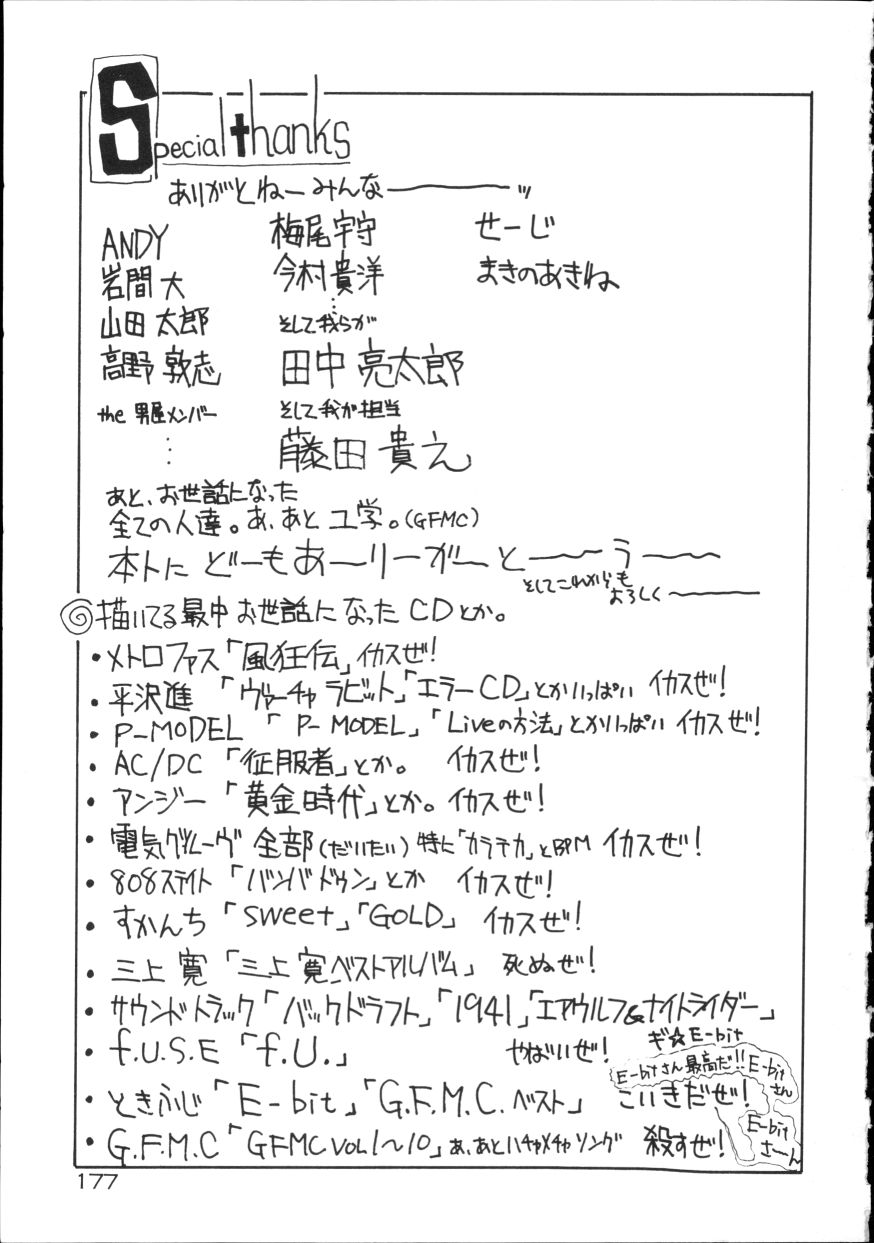 Special thanks
ありがとねーみんなーーーーッ
ANDY
岩間 大
山田 太郎
高野 敦志
the 男屋メンバー
⋮
梅尾宇守
今村貴洋
⋮
そして我らが
田中 亮太郎
そして我が担当
藤田 貴え
せーじ
まきのあきね
あと、お世話になった
全ての人達。あ、あと ユ学。(GFMC)
本トに どーもあーりーがーとーーうーー
そしてこれからも
よろしく〜ーー
描いてる最中お世話になったCDとか。
・メトロファス「風狂伝」イカスぜ!
・平沢進 「ヴァーチャラビット」「エラーCD」とかいっぱい イカスぜ!
・P-MODEL 「P-MODEL」「Liveの方法」とかいっぱい イカスぜ!
・AC/DC 「征服者」とか。 イカスぜ!
・アンジー 「黄金時代」とか。イカスぜ!
・電気グルーヴ 全部(だいたい) 特に「カラテカ」とBPM イカスぜ!
・808ステイト「バンババドゥン」とか イカスぜ!
・すかんち「sweet」「GOLD」 イカスぜ!
・三上 寛「三上 寛ベストアルバム」 死ぬぜ!
・サウンドトラック「バックドラフト」「1941」「エアウルフ&ナイトライダー」
・f.U.S.E「f.U.」 やばいぜ!
ギ☆E-bit
E-bitさん最高だ!!
E-bit
さん
・ときふじ「E-bit」「G.F.M.C.ベスト」 こいきだぜ!
E-bit
さーん
・G.F.M.C「GFMC VOL1〜10」あ、あとハチャメチャソング 殺すぜ!
177